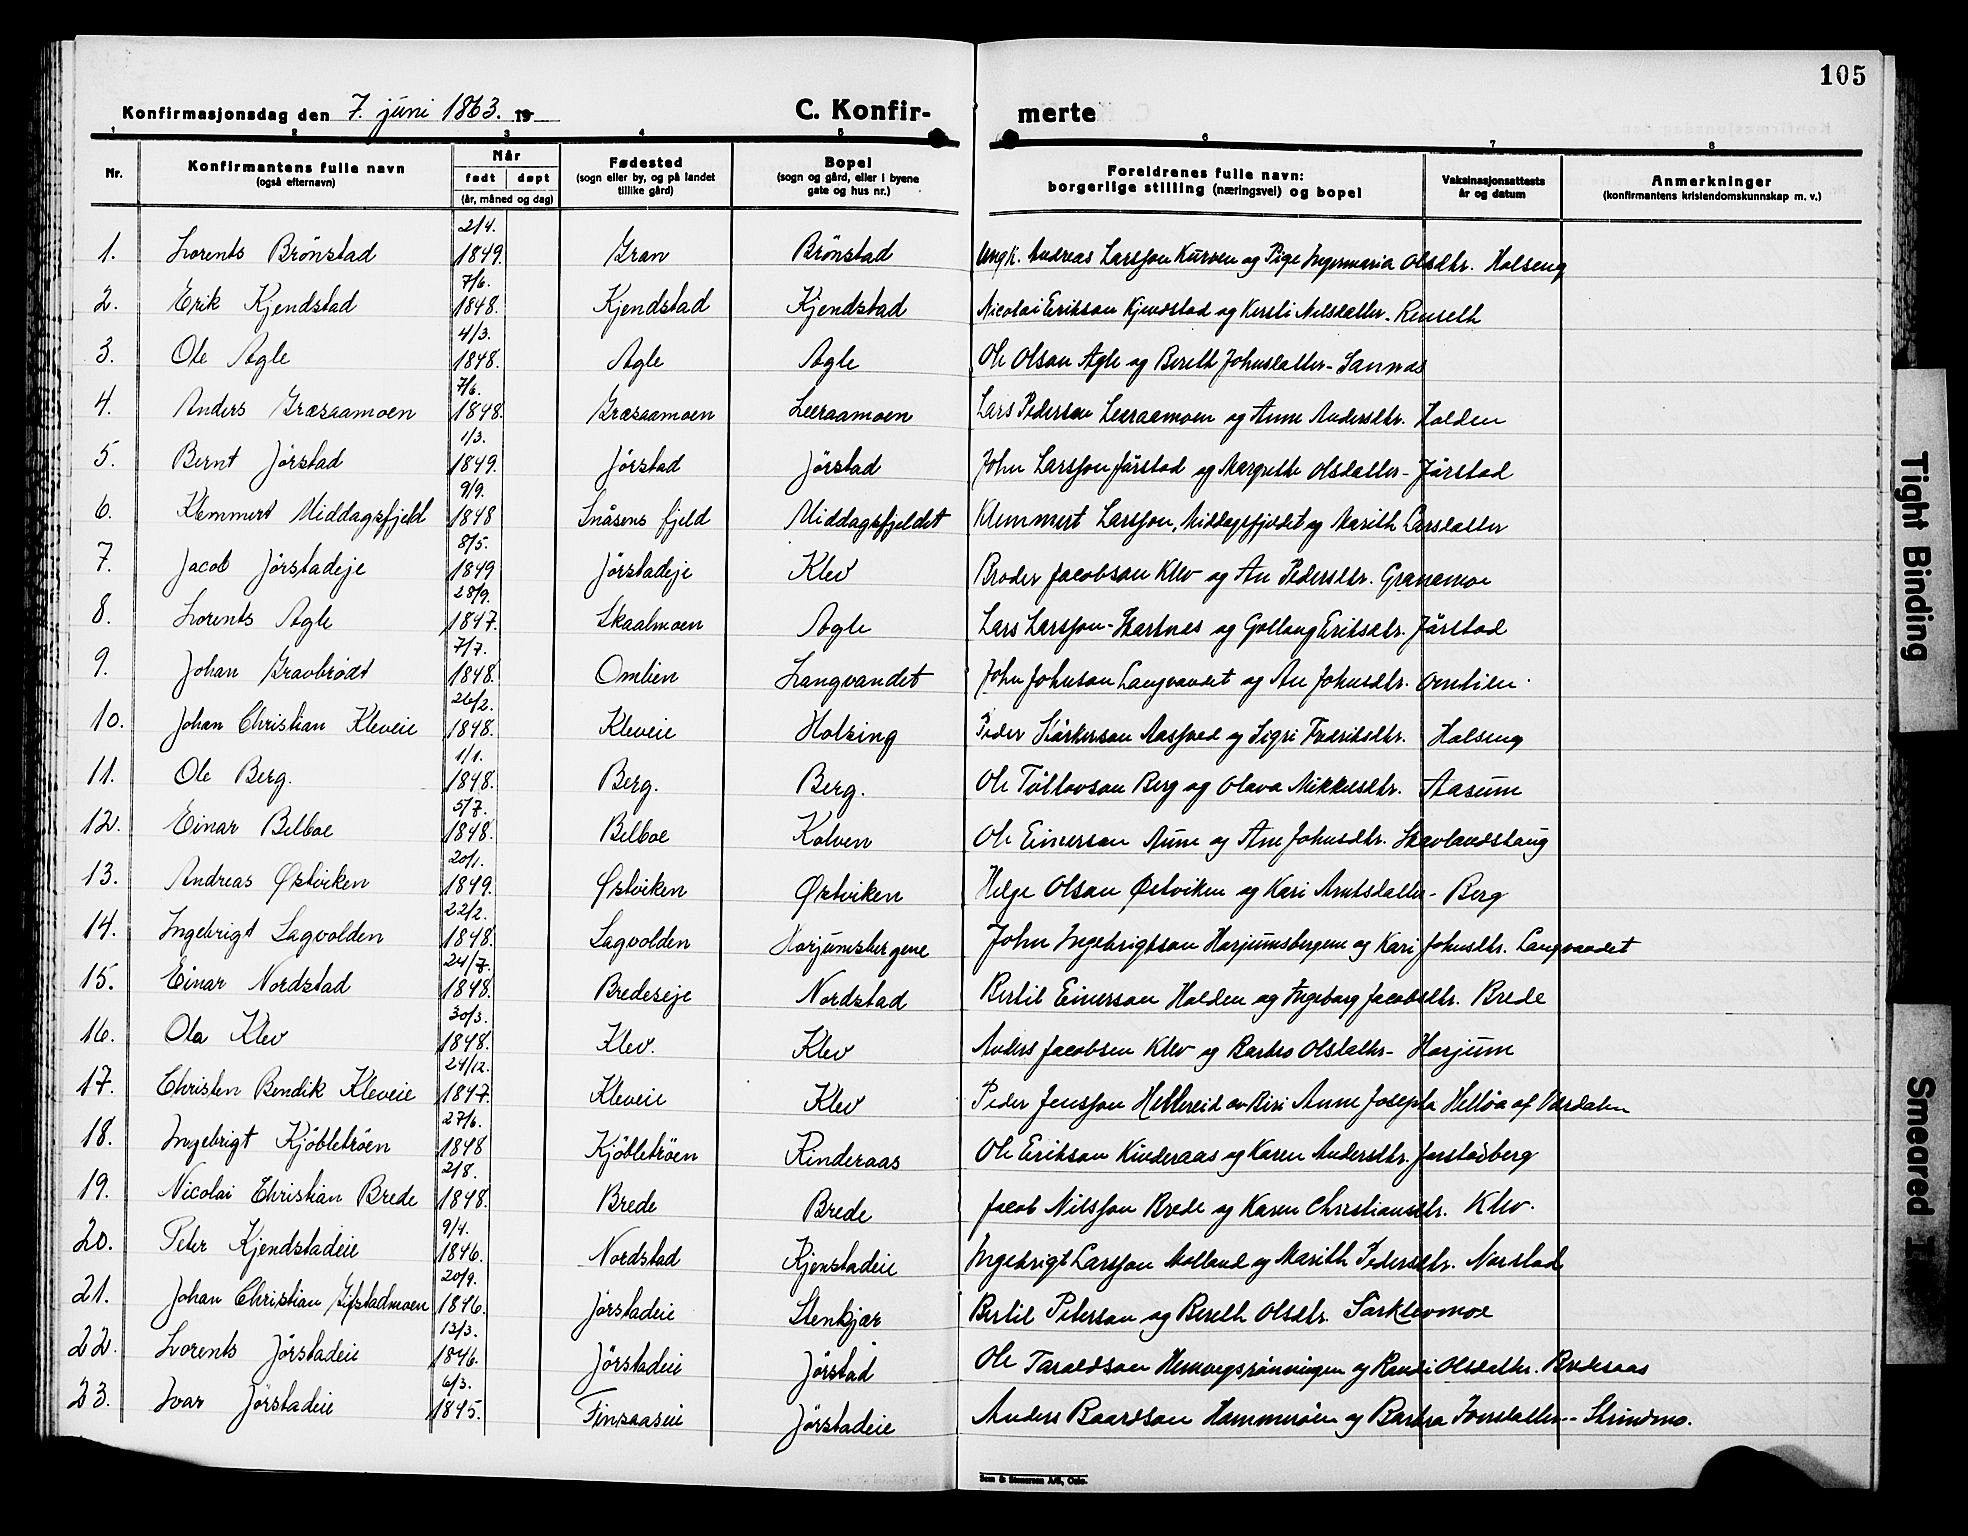 105
Konfirmasjonsdag den 7. juni 1863. 19
C. Konfir- merte
1 2 3 4 5 6 7 8
Nr.
Konfirmantens fulle navn
(også efternavn)
Når
født døpt
(år, måned og dag)
Fødested
(sogn eller by, og på landet
tillike gård)
Bopel
(sogn og gård, eller i byene
gate og hus nr.)
Foreldrenes fulle navn:
borgerlige stilling (næringsvei) og bopel
Vaksinasjonsattests
år og datum
Anmerkninger
(konfirmantens kristendomskunnskap m. v.)
1. Lorents Brönstad 2/4. 1849. Gran Brönstad Ungk. Andreas Larsson Kurven og Pige Ingermaria Olsdtr. Holseng
2. Erik Kjendstad 7/6. 1848. Kjendstad Kjendstad Nicolai Erikson Kjendstad og Kersti Nilsdatter - Renselth
3. Ole Agle 4/3. 1848. Agle Agle Ole Olson Agle og Bereth Johnsdatter - Sannas
4. Anders Græsaamoen 7/6. 1848. Græsaamoen Leeraamoen Lars Pederson Leeraamoen og Anne Andersdtr. Holden
5. Bernt Jörstad 1/3. 1849. Jörstad Jörstad John Larsson Jörstad og Margrethe Olsdatter - Jörstad
6. Klemmert Middagsfjeld 9/9. 1848 Snåsens fjeld Middagsfjeldet Klemmert Larsson, Middagsfjeldet og Marith Larsdatter
7. Jacob Jörstadeje 8/5. 1849 Jörstadeje Klev Broder Jacobson Klev og An Pedersdtr. Granamoe
8. Lorents Agle 28/9. 1847. Skaalmoen Agle Lars Larsson - Hartnes og Gollaug Eriksdtr. Jörstad
9. Johan Gravbrödt 7/7. 1848. Omlien Langvandet John Johnson Langvandet og An Johnsdtr. Omlien.
10. Johan Christian Kleveie 26/2. 1848. Kleveie Holsing Peder Starkerson Aasved og Sigri Fredriksdtr. Holseng
11. Ole Berg. 1/1. 1848. Berg. Berg. Ole Töllovson Berg og Olava Mikkelsdtr. Aasum
12. Einar Belboe 5/7. 1848. Belboe Kolven Ole Einerson Aune og Ane Johnsdtr. Skavlandshaug
13. Andreas Østviken 20/1. 1849. Østviken Østviken Helge Olson Østviken og Kari Arntsdatter - Berg
14. Ingebrigt Lagvolden 22/2. 1848. Lagvolden Horjumsbergene John Ingebrigtson Horjumsbergene og Kari Johnsdtr. Langvandet
15. Einar Nordstad 24/7. 1848. Bredeseje Nordstad Bertil Einerson Holden og Ingeborg Jacobsdtr. Brede
16. Ole Klev 30/3. 1848. Klev. Klev Anders Jacobsen Klev og Barbro Olsdatter - Horjum
17. Christen Bendik Kleveie 24/12. 1847. Kleveie Klev Peder Jensson Hellereid av Biri Anne Josepha Helløa af Værdalen
18. Ingebrigt Kjöbletröen 27/6. 1848 Kjöbletröen Kinderaas Ole Erikson Kinderaas og Karen Andersdtr. Jorstadberg
19. Nicolai Christian Brede 2/8. 1848. Brede Brede Jacob Nilsson Brede og Karen Christiansdtr. Klev.
20. Peter Kjendstadeie 9/4. 1846. Nordstad Kjenstadeie Ingebrigt Larsson Molland og Marith Pedersdtr. Norstad
21. Johan Christian Gifstadmoen 20/9. 1846. Jörstadeie Stenkjær Bertil Peterson og Bereth Olsdtr. Sörklevmoe
22. Lorents Jörstadeie 13/3. 1846. Jörstadeie Jörstad Ole Taraldson Hemvegsrönningen og Randi Olsdatter. Bredesaas
23. Ivar Jörstadeie 6/3. 1845. Finsaaseie Jörstadeie Anders Baardson Hammeröen og Barbra Iversdatter - Strindmo.
Sem & Stenersen A/S, Oslo.
Tight Binding
Smeared I